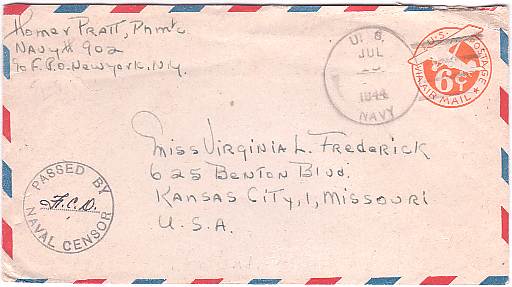 Homer Pratt, PhM1c
Navy # 902
℅ F.P.O. New York, N.Y.
U. S.
JUL
1944
NAVY
U.S. POSTAGE
6¢
VIA AIR MAIL
Miss Virginia L. Frederick
625 Benton Blvd.
Kansas City, 1, Missouri
U.S.A.
PASSED BY
F.C.D.
NAVAL CENSOR